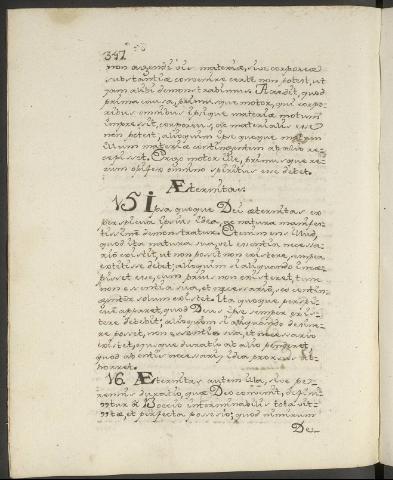 347
non agendi vis materiæ, sive corporeæ
substantiæ convenire certe non potest, ut
jam alibi demonstrabimus. Accedit, quod
prima causa, primusque motor, qui corpo=
ribus omnibus ipsique materiæ motum
impressit, corporeus, ac materialis esse
non potest; alioquin ipse quoque motum
illum materiæ contingentem ab alio re=
cepisset. Ergo motor ille, primusque re=
rum opifex omnino spiritus esse debet.
Æternitas.
15 Ipsa quoque Dei æternitas ex
perspicua ipsius idea, ac natura manifes=
tissime demonstratur. Etenim ens illud,
quod ita natura sua, vel essentia necessa=
rio existit, ut non possit non existere, semper
extitisse debet; alioquin si aliquando incæ=
pisset esse, cum prius non existeret, tunc
non essentia sua, et necessario, sed contin=
genter solum existet. Ita quoque perspi=
cue apparet, quod Deus ipse semper exis=
tere debebit; alioquin si aliquando desine=
re posset, non essentia sua, et necessario
existet, ejusque duratio ab alio penderet
quod ab entis necessarij idea prorsus ab=
horret.
16. Æternitas autem illa, sive pe=
rennis duratio, quæ Deo convenit, defini=
tur a Boecio interminabilis tota simul
vitæ, et perfecta possesio; quod nimirum
De=